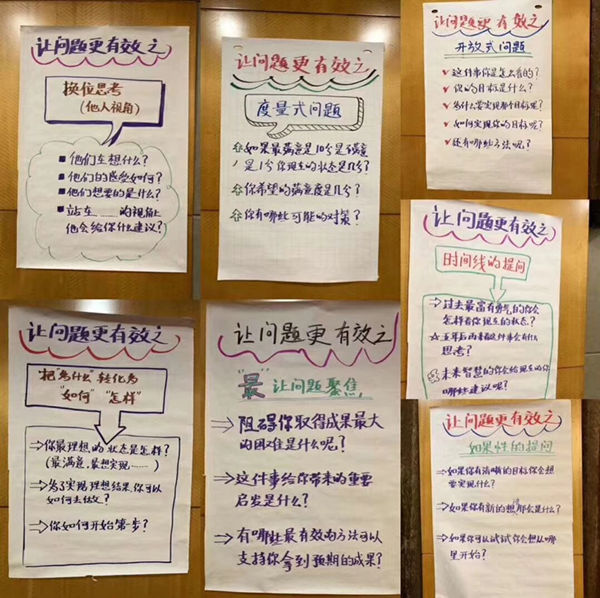 让问题更有效之
换位思考
（他人视角）
■ 他们在想什么？
■ 他们的感受如何？
■ 他们想要的是什么？
■ 站在……的视角上
他会给你什么建议？
让问题更有效之
度量式问题
如果最满意是10分是不满意
是1分你现在的状态是几分？
你希望的满意度是几分？
你有哪些可能的对策？
让问题更有效之
开放式问题
✓ 这件事你是怎么看的？
✓ 你的目标是什么？
✓ 为什么要实现那个目标呢？
✓ 如何实现你的目标呢？
✓ 还有哪些方法呢？
让问题更有效之
时间线的提问
过去最富有勇气的你会
怎样看你现在的状态？
☆五年后再看这件事会有什么
思考？
未来智慧的你会给现在的你
哪些建议呢？
让问题更有效之
"把"为什么"转化为
"如何" "怎样"
⇒你最理想的状态是怎样？
（最满意，最想实现……）
⇒为了实现理想结果，你可以
如何去做？
⇒你如何开始第一步？
让问题更有效之
"最"让问题聚焦
⇒阻碍你取得成果最大
的困难是什么呢？
⇒这件事给你带来的重要
启发是什么？
⇒有哪些最有效的方法可以
支持你拿到预期的成果？
让问题更有效之
如果性的提问
⇒如果你有清晰的目标你会想
要实现什么？
⇒如果你有新的想法那会是什么？
⇒如果你可以试试你会想从哪
里开始？